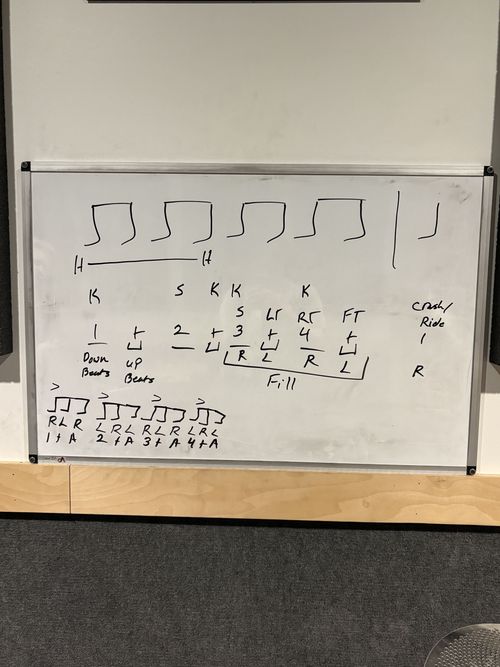 H H
K S K K K
S LT RT FT Crash/
Ride
1 + 2 + 3 + 4 + 1
Down Beats up Beats R L R L R
Fill
> > > >
R L R L R L R L R L R L
1 + A 2 + A 3 + A 4 + A